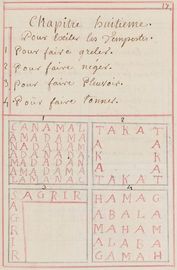 Chapitre huitieme.
Pour Exciter les Tempestes.
1 Pour faire greler.
2 Pour faire neger.
3 Pour faire Pleuvoir.
4 Pour faire Tonner.
1
CANAMAL
AMADAMA
NADADAM
AMADAMA
LAMANAC
2
TAKAT
A A
K K
A A
TAKAT
3
SAGRIR
A
G
R
I
R
4
HAMAG
ABALA
MALAM
ALABA
GAMAH